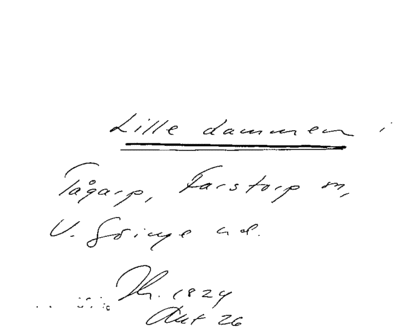 Lille dammen i
Tågarp, Farstorp sn,
V. Göinge hd.
Jh. 1824
Akt 26